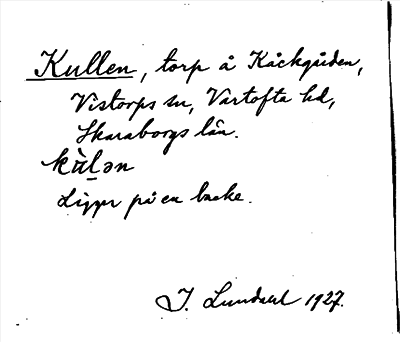 Kullen, torp å Kåckgården,
Vistorps sn, Vartofta hd,
Skaraborgs län.
kùlən
Ligger på en backe.
I. Lundahl 1927.